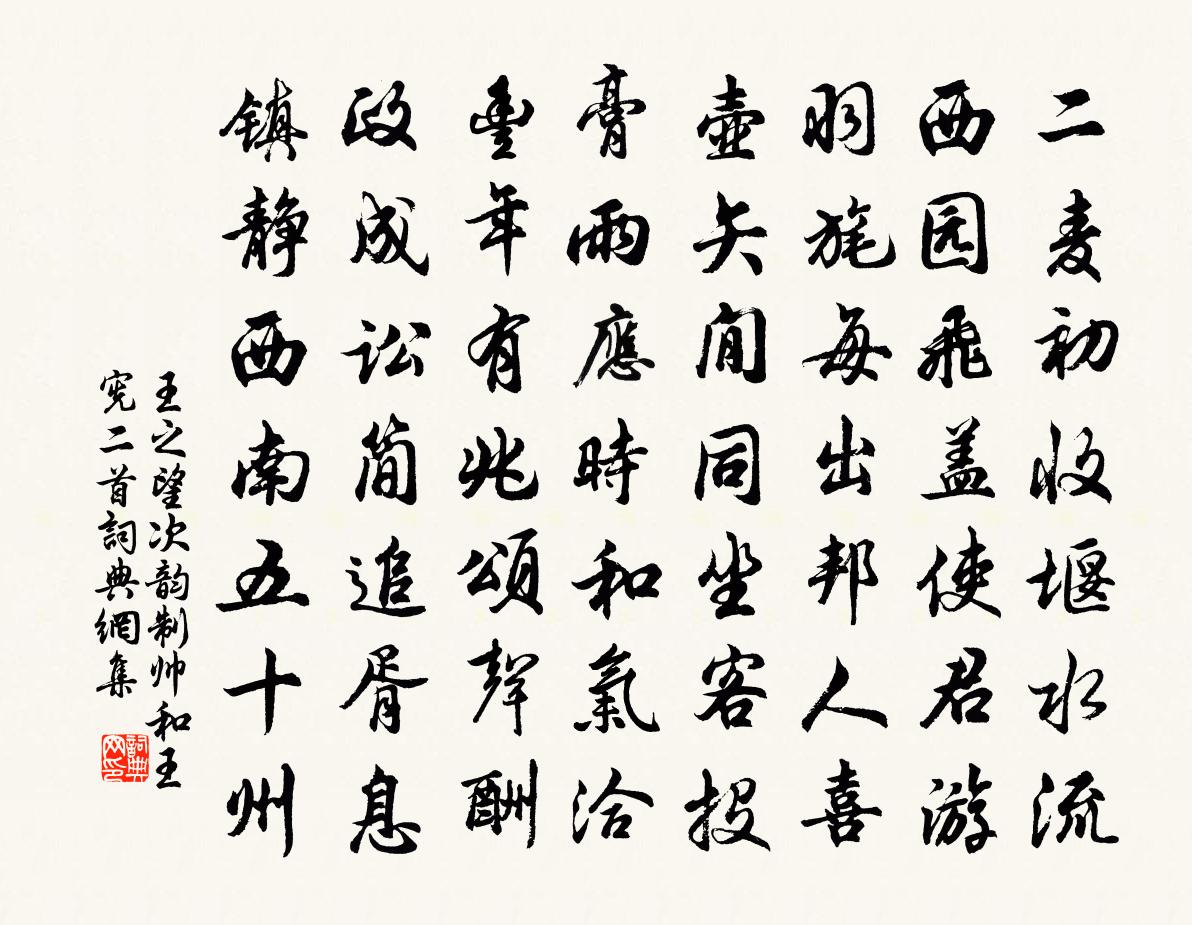 二麦初收堰水流
西园飛盖使君游
羽旄每出邦人喜
壺矢闲同坐客投
膏雨應時和氣洽
豐年有兆頌聲酬
政成訟简追胥息
镇静西南五十州
王之望次韵制帅和王
宪二首詞典網集
詞典网印